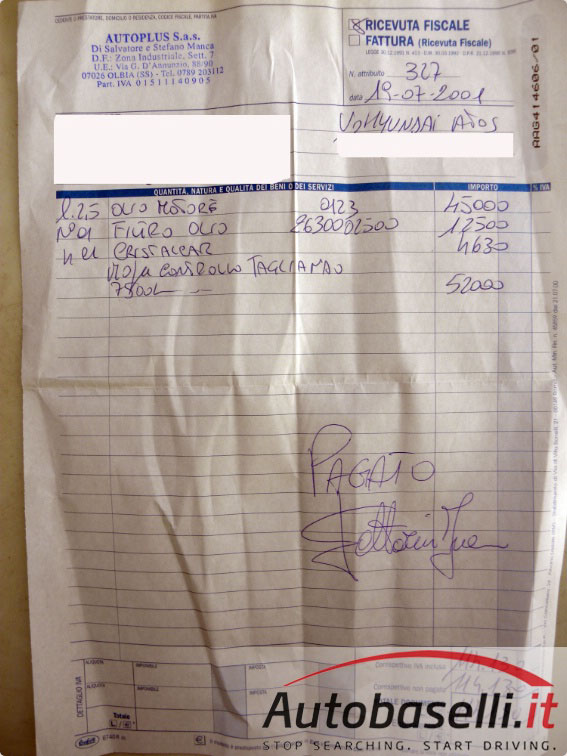 CEDENTE O PRESTATORE, DOMICILIO O RESIDENZA, CODICE FISCALE, PARTITA IVA
AUTOPLUS S.a.s.
Di Salvatore e Stefano Manca
D.F.: Zona Industriale, Sett. 7
U.E.: Via G. D'Annunzio, 88/90
07026 OLBIA (SS) - Tel. 0789 203112
Part. IVA 01511140905
RICEVUTA FISCALE
FATTURA (Ricevuta Fiscale)
N. attribuito 327
data 19-07-2001
HYUNDAI ATOS
AAG414606/01
QUANTITÀ, NATURA E QUALITÀ DEI BENI O DEI SERVIZI IMPORTO % IVA
l. 2,5 OLIO MOTORE 0123 45000
N°01 FILTRO OLIO 2630002500 12500
N 01 CRISTALCAR 4630
CONTROLLO TAGLIANDO
52000
PAGATO
DETTAGLIO IVA
ALIQUOTA IMPONIBILE IMPOSTA
Corrispettivo IVA inclusa
ALIQUOTA IMPONIBILE IMPOSTA
Corrispettivo non pagato
Totale
L / €
Autobaselli.it
STOP SEARCHING. START DRIVING.